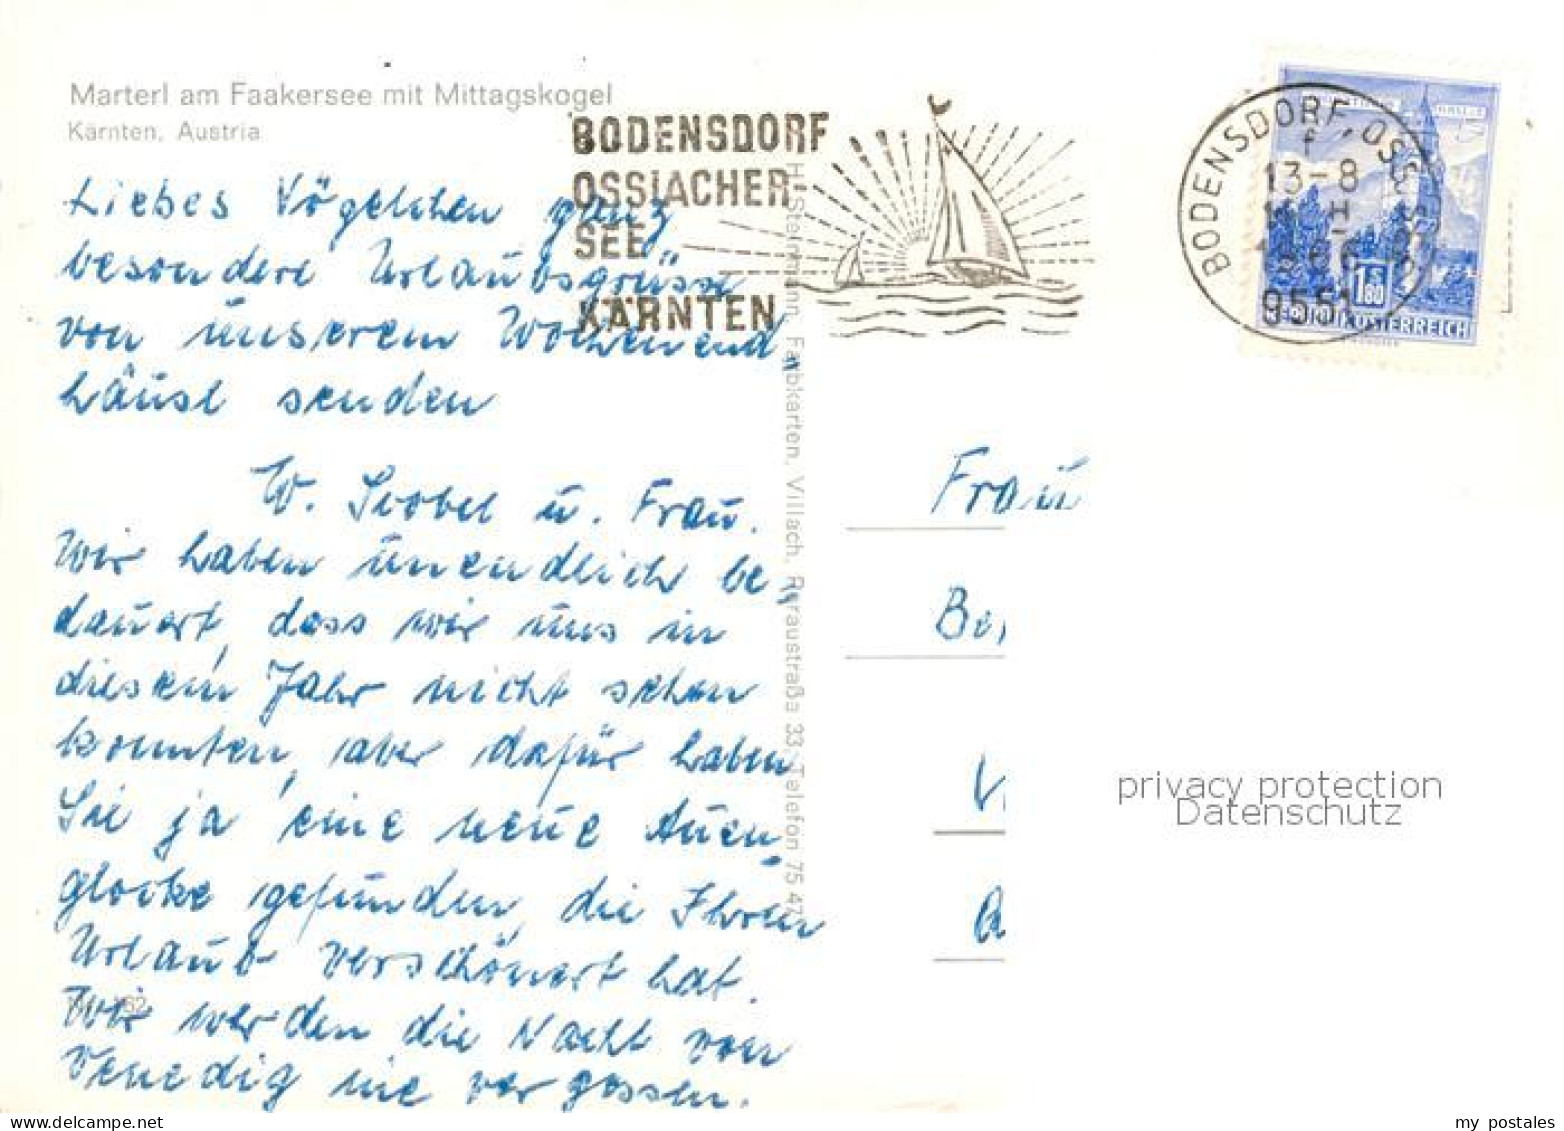 Marterl am Faakersee mit Mittagskogel
Kärnten, Austria
BODENSDORF
OSSIACHER-
SEE
KÄRNTEN
BODENSDORF, OSS
13-8
9551
1.80
REPUBLIK ÖSTERREICH
Liebes Vögelchen ganz
besondere Urlaubsgrüsse
von unserem Wochenend„
häusl senden
W. u. Frau.
Wir haben unendlich be„
dauert, dass wir uns in
diesem Jahr nicht sehen
konnten, aber dafür haben
Sie ja eine neue
glocke gefunden, die Ihren
Urlaub verschönert hat.
Wir werden die Nacht von
Venedig nie vergessen.
Farbkarten, Villach, Peraustraße 33, Telefon 75 47
Frau
privacy protection
Datenschutz
delcampe.net
my_postales